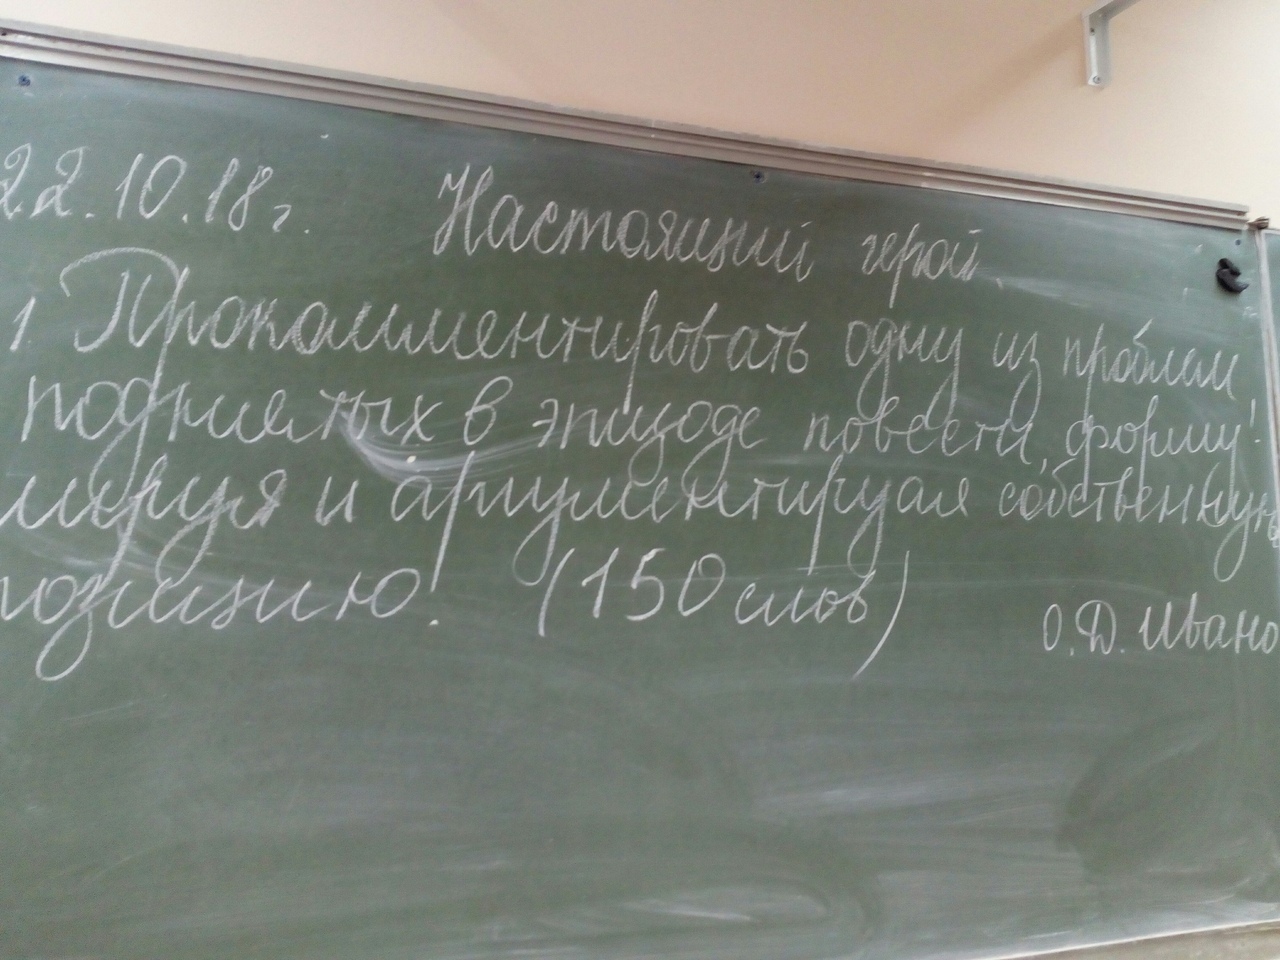 22.10.18 г. Настоящий герой.
1. Прокомментировать одну из проблем
поднятых в эпизоде повести, форму-
лируя и аргументируя собственную
позицию. (150 слов)
О.Д. Ивано